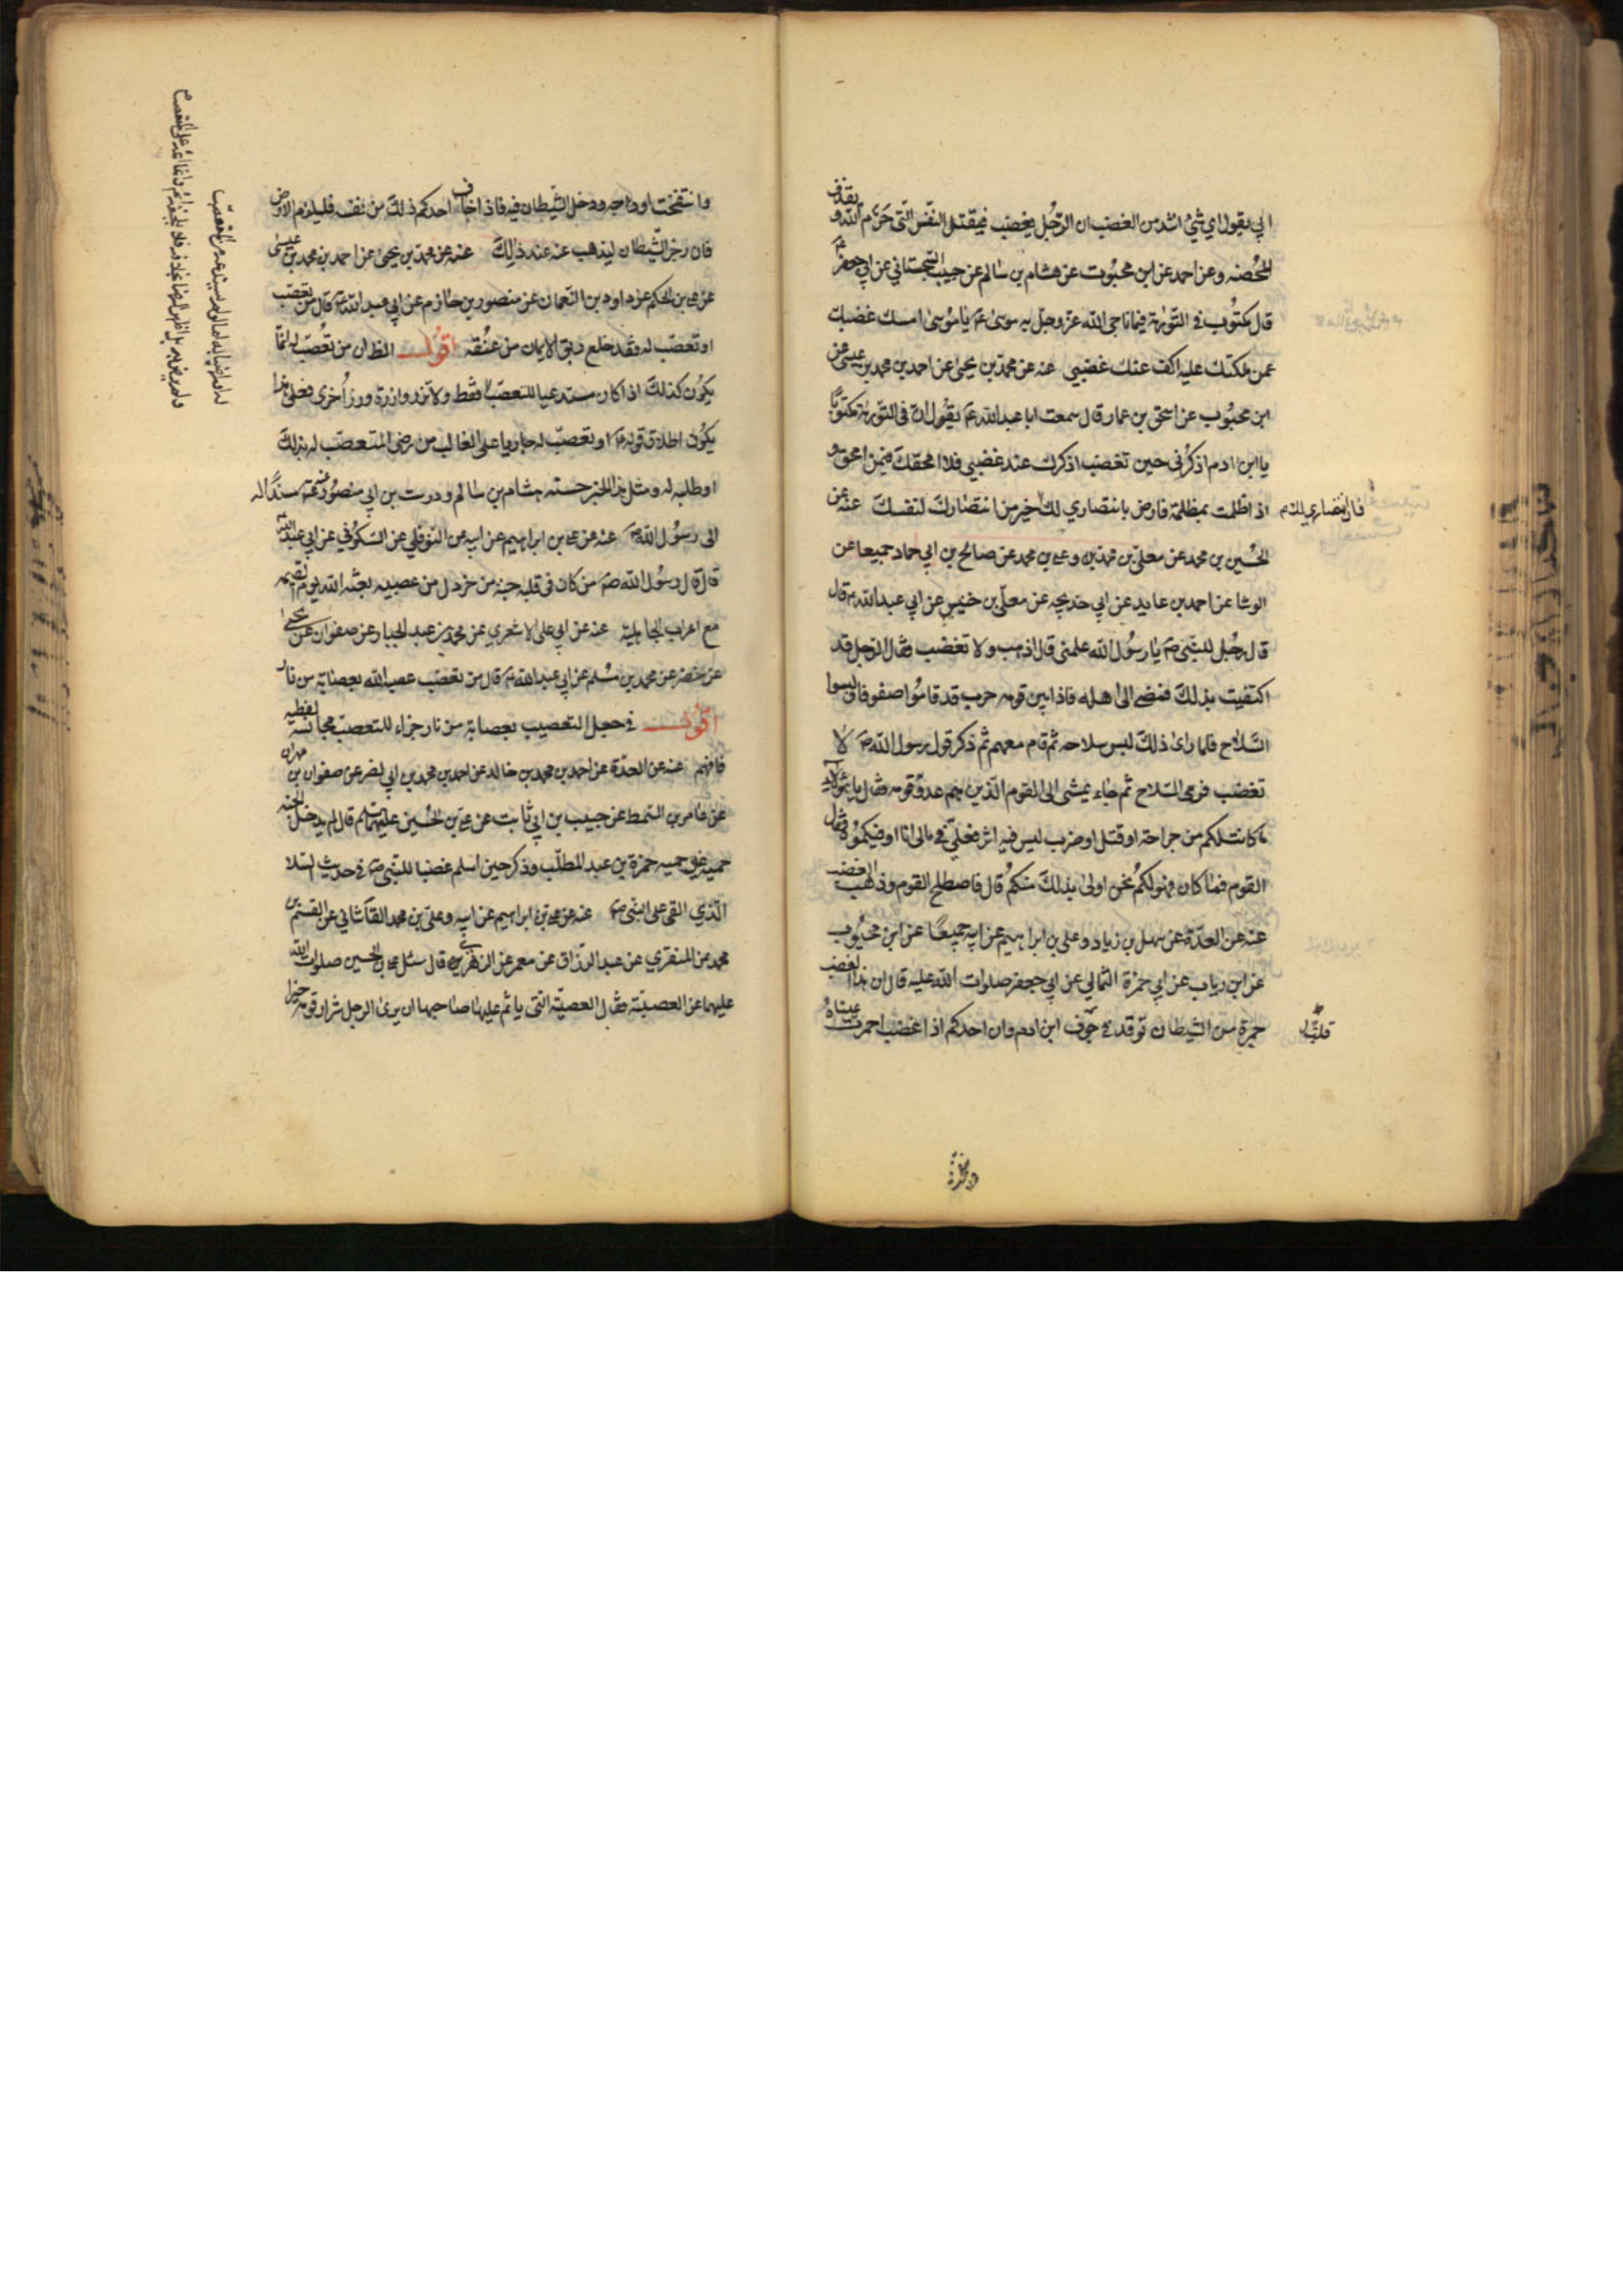 ابي يقول اي شيء اشد من الغضب ان الرجل يغضب فيقتل النفس التي حرم الله و يقذف
المحصنه وعن احمد عن ابن محبوب عن هشام بن سالم عن حبيب السجستاني عن ابي جعفر ع
قال مكتوب في التورية فيما ناجى الله عز وجل به موسى ع يا موسى امسك غضبك
عمن ملكتك عليه اكف عنك غضبي عنه عن محمد بن يحيى عن احمد بن محمد بن عيسى عن
ابن محبوب عن اسحق بن عمار قال سمعت ابا عبد الله ع يقول ان في التورية مكتوبا
يا ابن ادم اذكرني حين تغضب اذكرك عند غضبي فلا امحقك فيمن امحق و
اذا ظلمت بمظلمة فارض بانتصاري لك خير من انتصارك لنفسك عنه عن
فان انتصاري لك م
الحسين بن محمد عن معلى بن محمد وعلي بن محمد عن صالح بن ابي حماد جميعا عن
الوشا عن احمد بن عايد عن ابي خديجه عن معلى بن خنيس عن ابي عبد الله ع قال
قال رجل للنبي ص يا رسول الله علمني قال اذهب ولا تغضب فقال الرجل قد
اكتفيت بذلك فمضى الى اهله فاذا بين قومه حرب قد قاموا صفوفا ولبسوا
السلاح فلما راى ذلك لبس سلاحه ثم قام معهم ثم ذكر قول رسول الله ص لا
تغضب فرمى السلاح ثم جاء يمشي الى القوم الذين هم عدو قومه فقال يا هؤلاء
ما كانت لكم من جراحة او قتل او ضرب ليس فيه اثر فعلي في مالي انا اوفيكموه فقال
القوم فما كان فهو لكم نحن اولى بذلك منكم قال فاصطلح القوم وذهب الغضب
عنه عن العدة عن سهل بن زياد وعلي بن ابراهيم عن ابيه جميعا عن ابن محبوب
عن ابن رياب عن ابي حمزة الثمالي عن ابي جعفر صلوات الله عليه قال ان هذا الغضب
جمرة من الشيطان توقد في جوف ابن ادم وان احدكم اذا غضب احمرت عيناه
قلب
وانتفخت اوداجه ودخل الشيطان فيه فاذا خاف احدكم ذلك من نفسه فليلزم الارض
فان رجز الشيطان ليذهب عنه عند ذلك عنه عن محمد بن يحيى عن احمد بن محمد بن عيسى
عن علي بن الحكم عن داود بن النعمان عن منصور بن حازم عن ابي عبد الله ع قال من تعصب
او تعصب له فقد خلع ربق الايمان من عنقه اقول الظ ان من تعصب له انما
يكون كذلك اذا كان مستدعيا للتعصب فقط ولا تزر وازرة وزر اخرى فعلى هذا
يكون اطلاق قوله ع او تعصب له جاريا على الغالب من رضى المتعصب له بذلك
او طلبه له ومثل هذا الخبر حسنه هشام بن سالم ودرست بن ابي منصور عنه ع سندا له
الى رسول الله ص عنه عن علي بن ابراهيم عن ابيه عن النوفلي عن السكوني عن ابي عبد الله
قال قال رسول الله ص من كان في قلبه حبة من خردل من عصبيه بعثه الله يوم القيمه
مع اعراب الجاهلية عنه عن ابي علي الاشعري عن محمد بن عبد الجبار عن صفوان بن يحيى
عن خضر عن محمد بن مسلم عن ابي عبد الله ع قال من تعصب عصبه الله بعصابة من نار
اقول في جعل التعصيب بعصابة من نار جزاء للتعصب مجانسة لفظيه
فافهم عنه عن العدة عن احمد بن محمد بن خالد عن احمد بن محمد بن ابي نصر عن صفوان بن مهران
عن عامر بن السمط عن حبيب بن ابي ثابت عن علي بن الحسين عليهما السلم قال لم يدخل الجنه
حمية غير حميه حمزة بن عبد المطلب وذكر حين اسلم غضبا للنبي ص في حديث السلا
الذي القى على النبي ص عنه عن علي بن ابراهيم عن ابيه وعلي بن محمد القاشاني عن القسم بن
محمد عن المنقري عن عبد الرزاق عن معمر عن الزهري قال سئل علي بن الحسين صلوات الله
عليهما عن العصبية فقال العصبية التي ياثم عليها صاحبها ان يرى الرجل شرار قومه خيرا